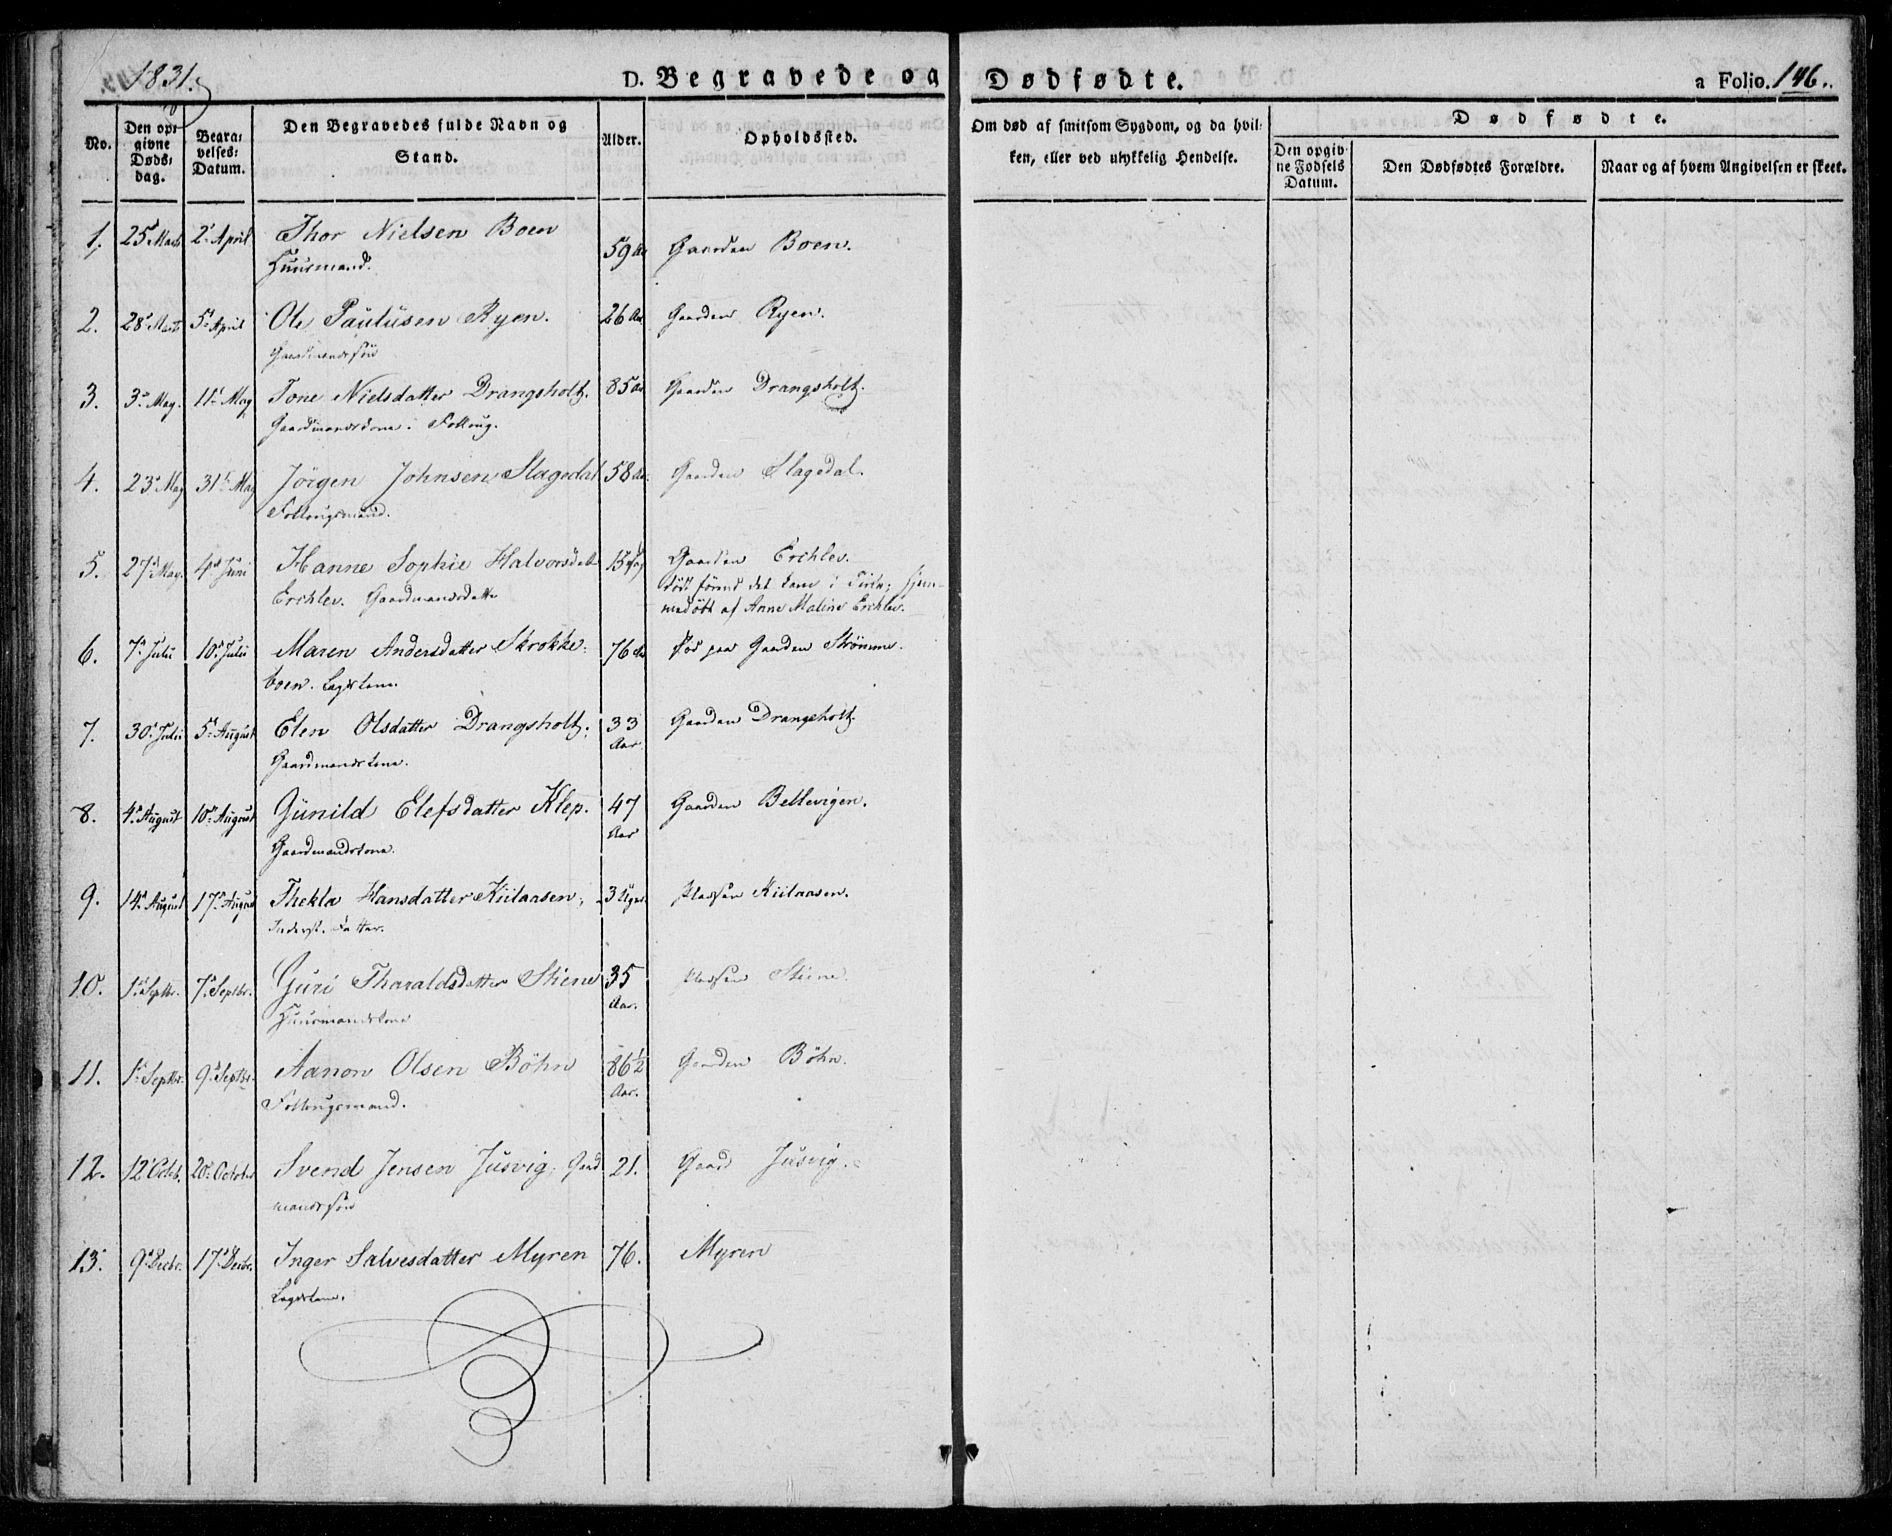 1831.
D. Begravede og Dødfødte.
a Folio. 146.
No.
Den opgivne Dødsdag.
Begravelses-Datum.
Den Begravedes fulde Navn og Stand.
Alder.
Opholdssted.
Om død af smitsom Sygdom, og da hvilken, eller ved ulykkelig Hendelse.
Dødfødte.
Den opgivne Fødsels Datum.
Den Dødfødtes Forældre.
Naar og af hvem Angivelsen er skeet.
1. 25 Marts 2 April Thor Nielsen Boen 59 Aar Gaarden Boen.
Huusmand.
2. 28 Marts 5 April Ole Paulusen Ryen. 26 Aar Gaarden Ryen.
Gaardmandssøn
3. 3 May. 11 May Tone Nielsdatter Drangsholt. 85 Aar Gaarden Drangsholt.
Gaardmandskone i Follaug.
4. 23 May 31 May Jörgen Johnsen Slagedal 58 Aar. Gaarden Slagedal.
Follaugsmand.
5. 27 May. 4 Juni Hanne Sophie Halvorsdatter 15 Gaarden Erchlev.
Erchlev. Gaardmandsdatter død förend det kom i Kirke; hjem-
medöbt af Anne Maline Erchlev.
6. 7 Julii 10 Julii Maren Andersdatter Skrokke- 76 Aar død paa Gaarden Strömme.
boen. Lægdskone.
7. 30 Julii 5 August Elen Olsdatter Drangsholt. 33 Aar Gaarden Drangsholt
Gaardmandskone.
8. 4 August 10 August Gunild Elefsdatter Klep. 47 Aar Gaarden Bellevigen.
Gaardmandskone.
9. 14 August 17 August Thekla Hansdatter Kiilaasen, 3 Uger Pladsen Kiilaasen.
Inderst. Datter.
10. 1 Septbr. 7 Septbr. Guri Tharaldsdatter Stiene 35 Aar. Pladsen Stiene
Huusmandskone
11. 1 Septbr. 9 Septbr. Aanon Olsen Böhn 86½ Aar. Gaarden Böhn.
Follaugsmand.
12. 12 Octob. 20 October Svend Jensen Jusvig, Gaard- 21. Gaard Jusvig.
mandssøn
13. 9 Decbr. 17 Decbr. Inger Salvesdatter Myren 76. Myren
Lægdskone.